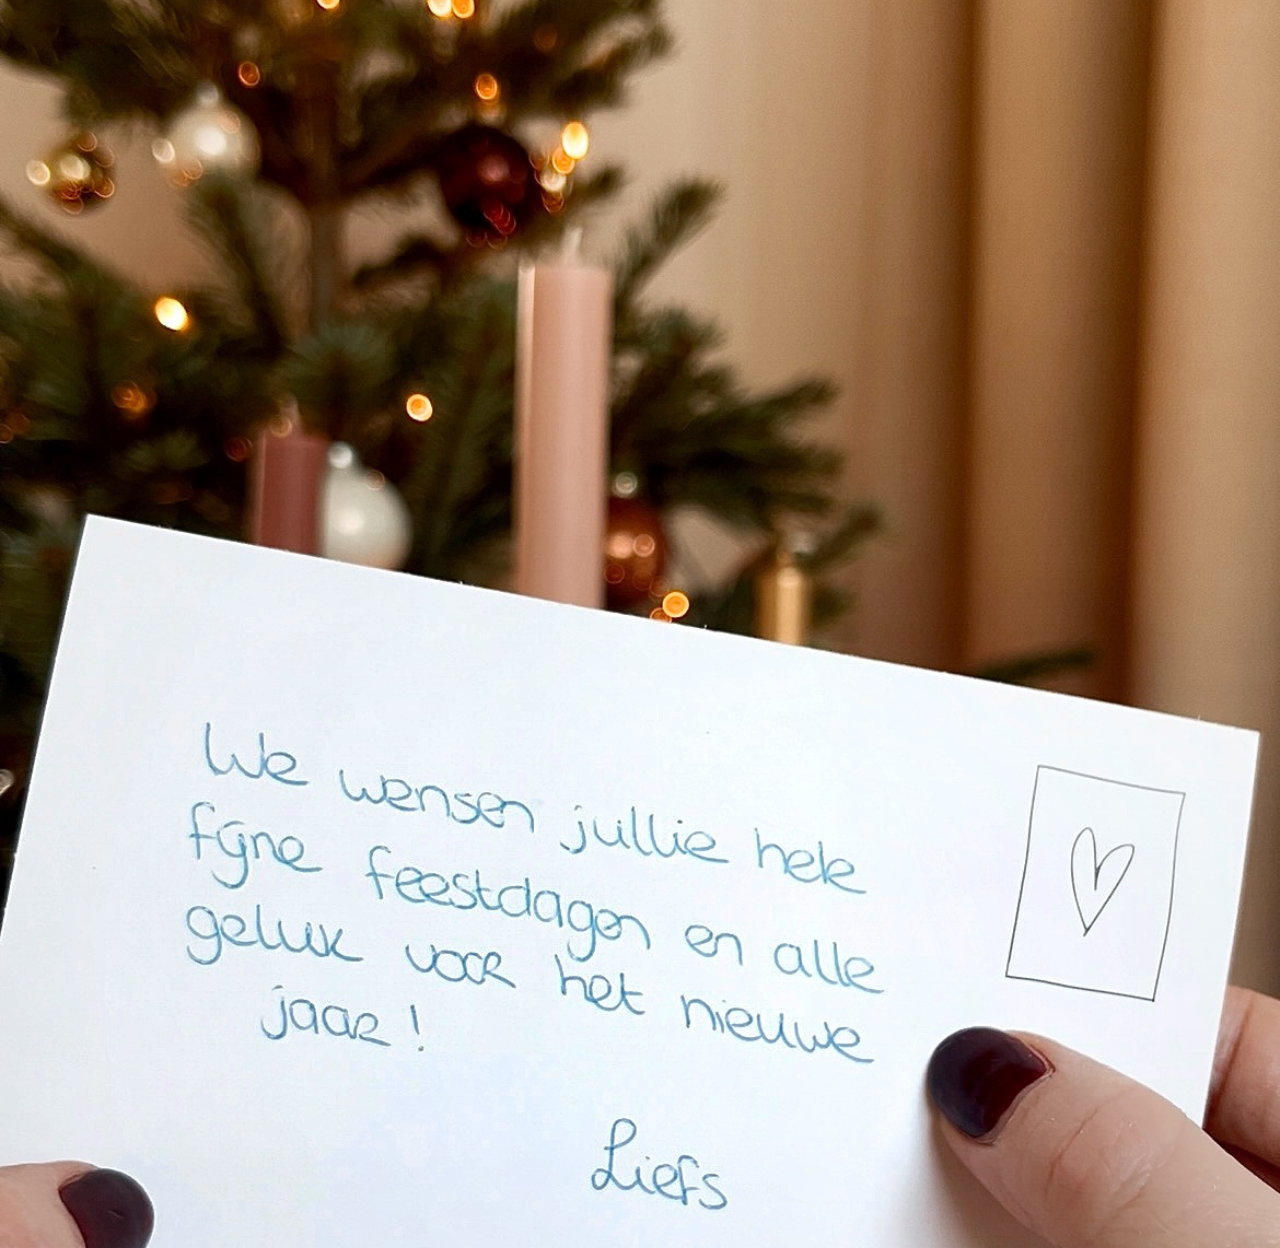 We wensen jullie hele
fijne feestdagen en alle
geluk voor het nieuwe
jaar!
Liefs